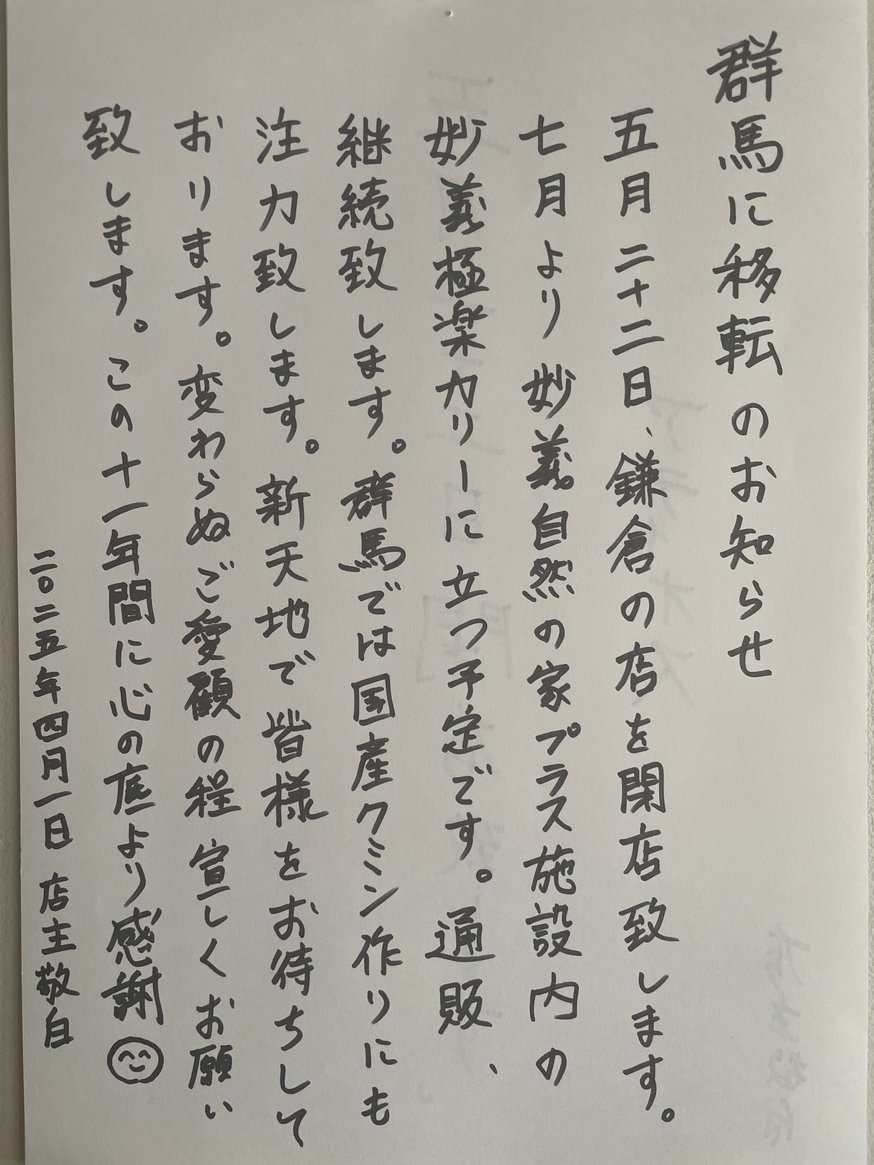 群馬に移転のお知らせ
五月二十二日、鎌倉の店を閉店致します。
七月より妙義自然の家プラス施設内の
妙義極楽カリーに立つ予定です。通販、
継続致します。群馬では国産クミン作りにも
注力致します。新天地で皆様をお待ちして
おります。変わらぬご愛顧の程宜しくお願い
致します。この十一年間に心の底より感謝😊
二〇二五年四月一日 店主敬白